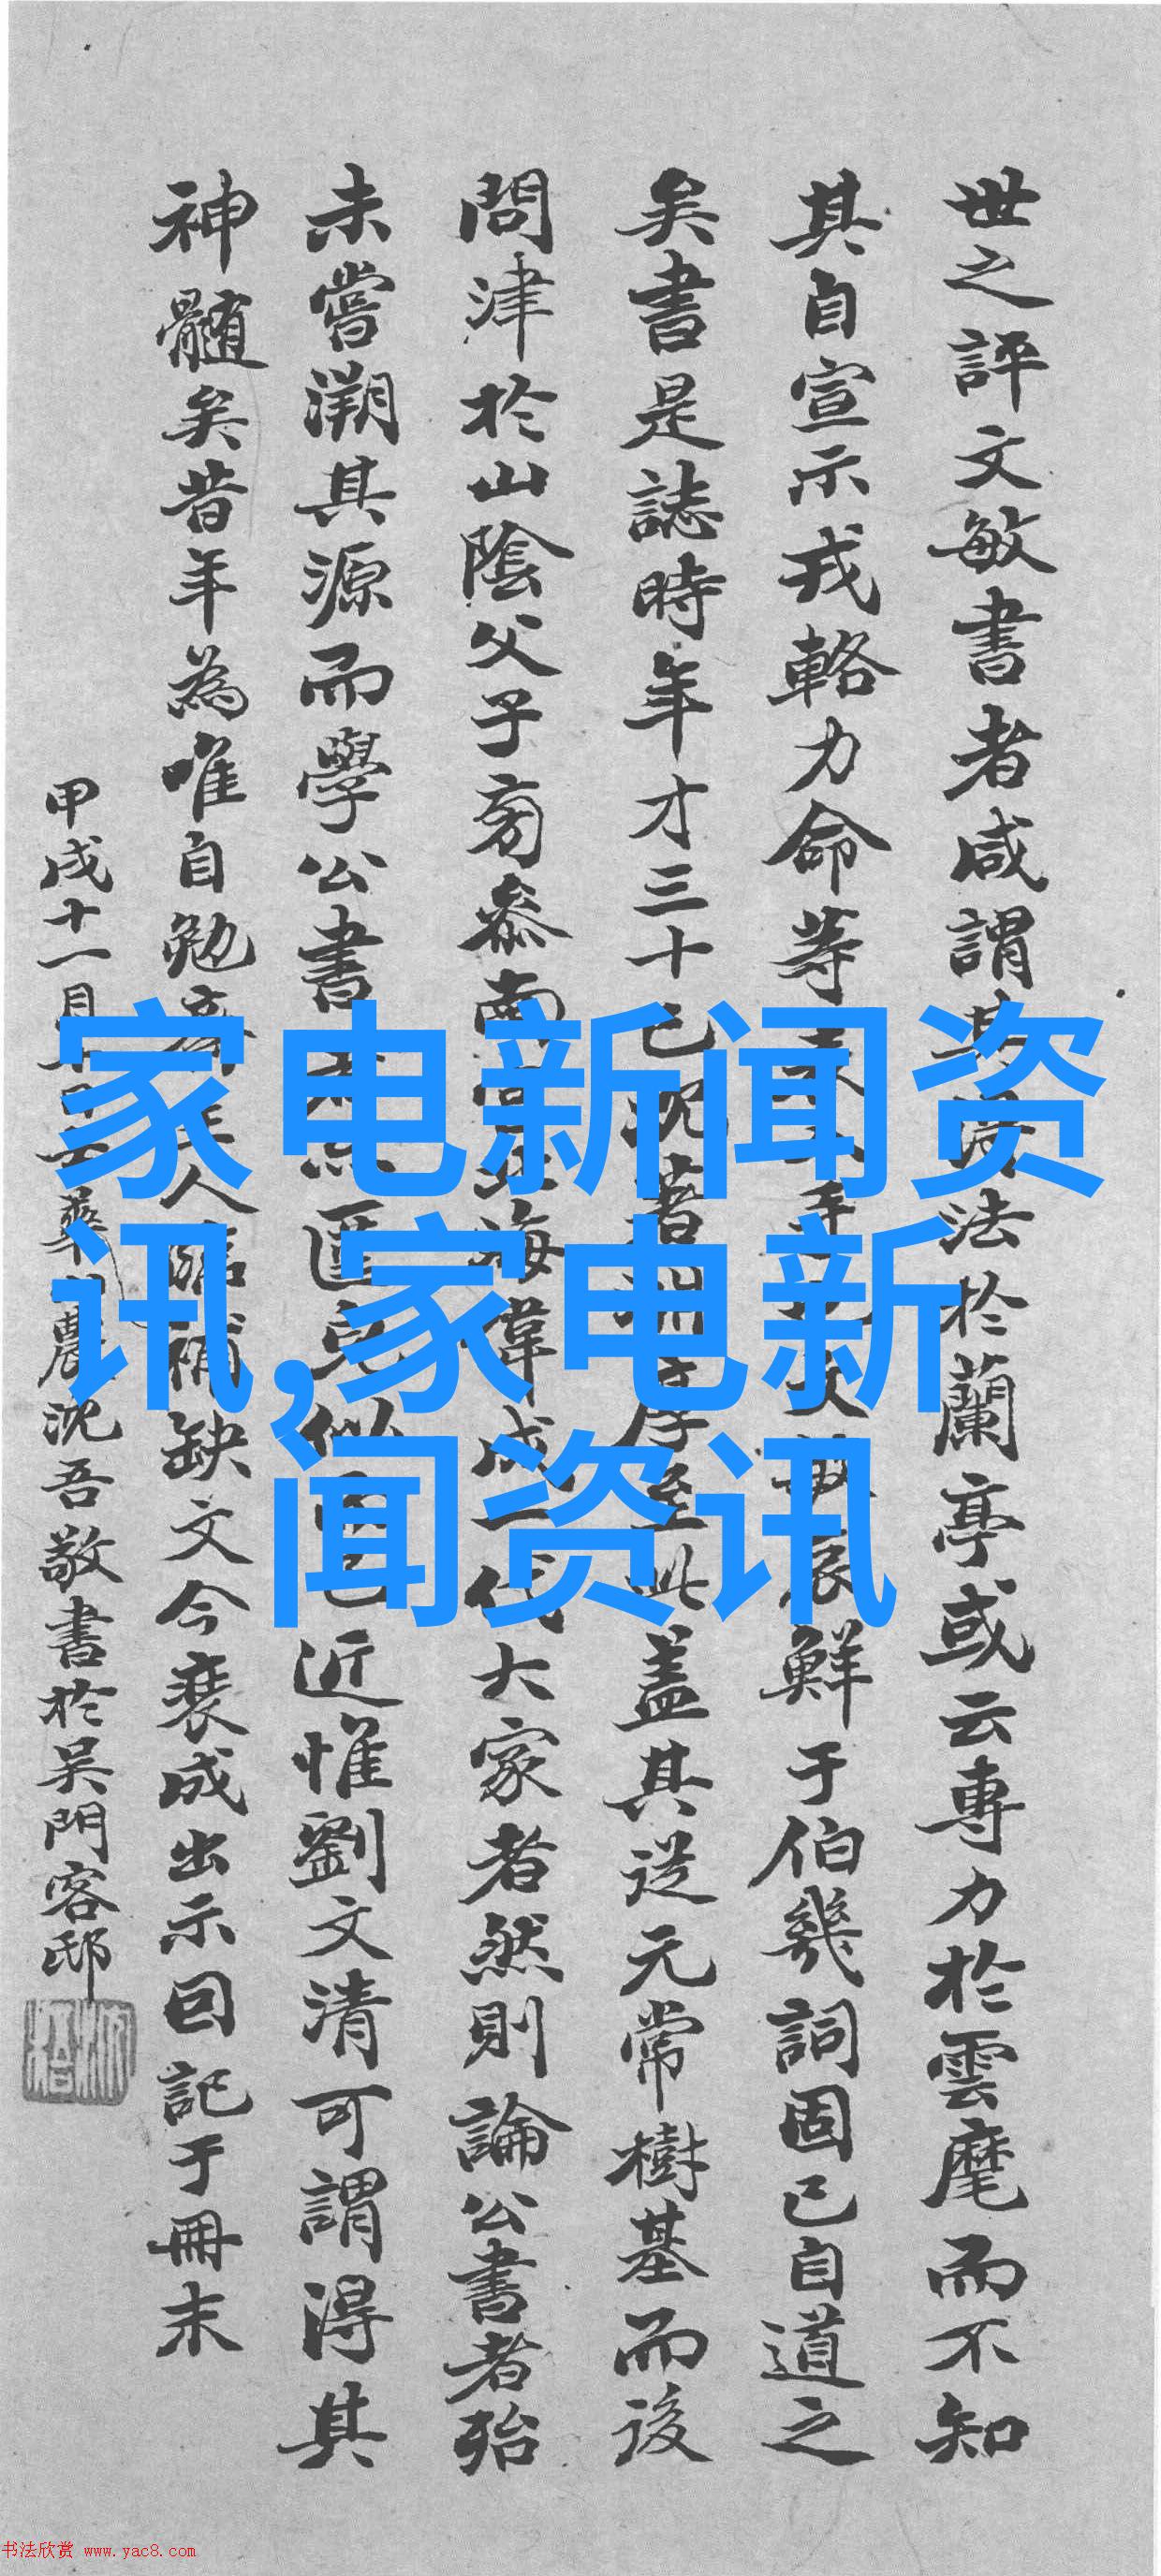 世之評文敏書者咸謂其法於蘭亭或云專力於雲麾而不知
其自宣示戎輅力命等鮮于伯幾詞固已自道之
矣書是誌時年才三十已至此蓋其從元常樹基而後
問津於山陰父子旁參南海偉成一代大家者然則論公書者殆
未嘗溯其源而學公書近惟劉文清可謂得其
神髓矣昔年為唯自勉人臨補缺文今裝成出示回記于冊末
甲戌十一月華農沈吾敬書於吳門客邸
家电新闻资
讯,家电新
闻资讯
书法欣赏 www.yac8.com